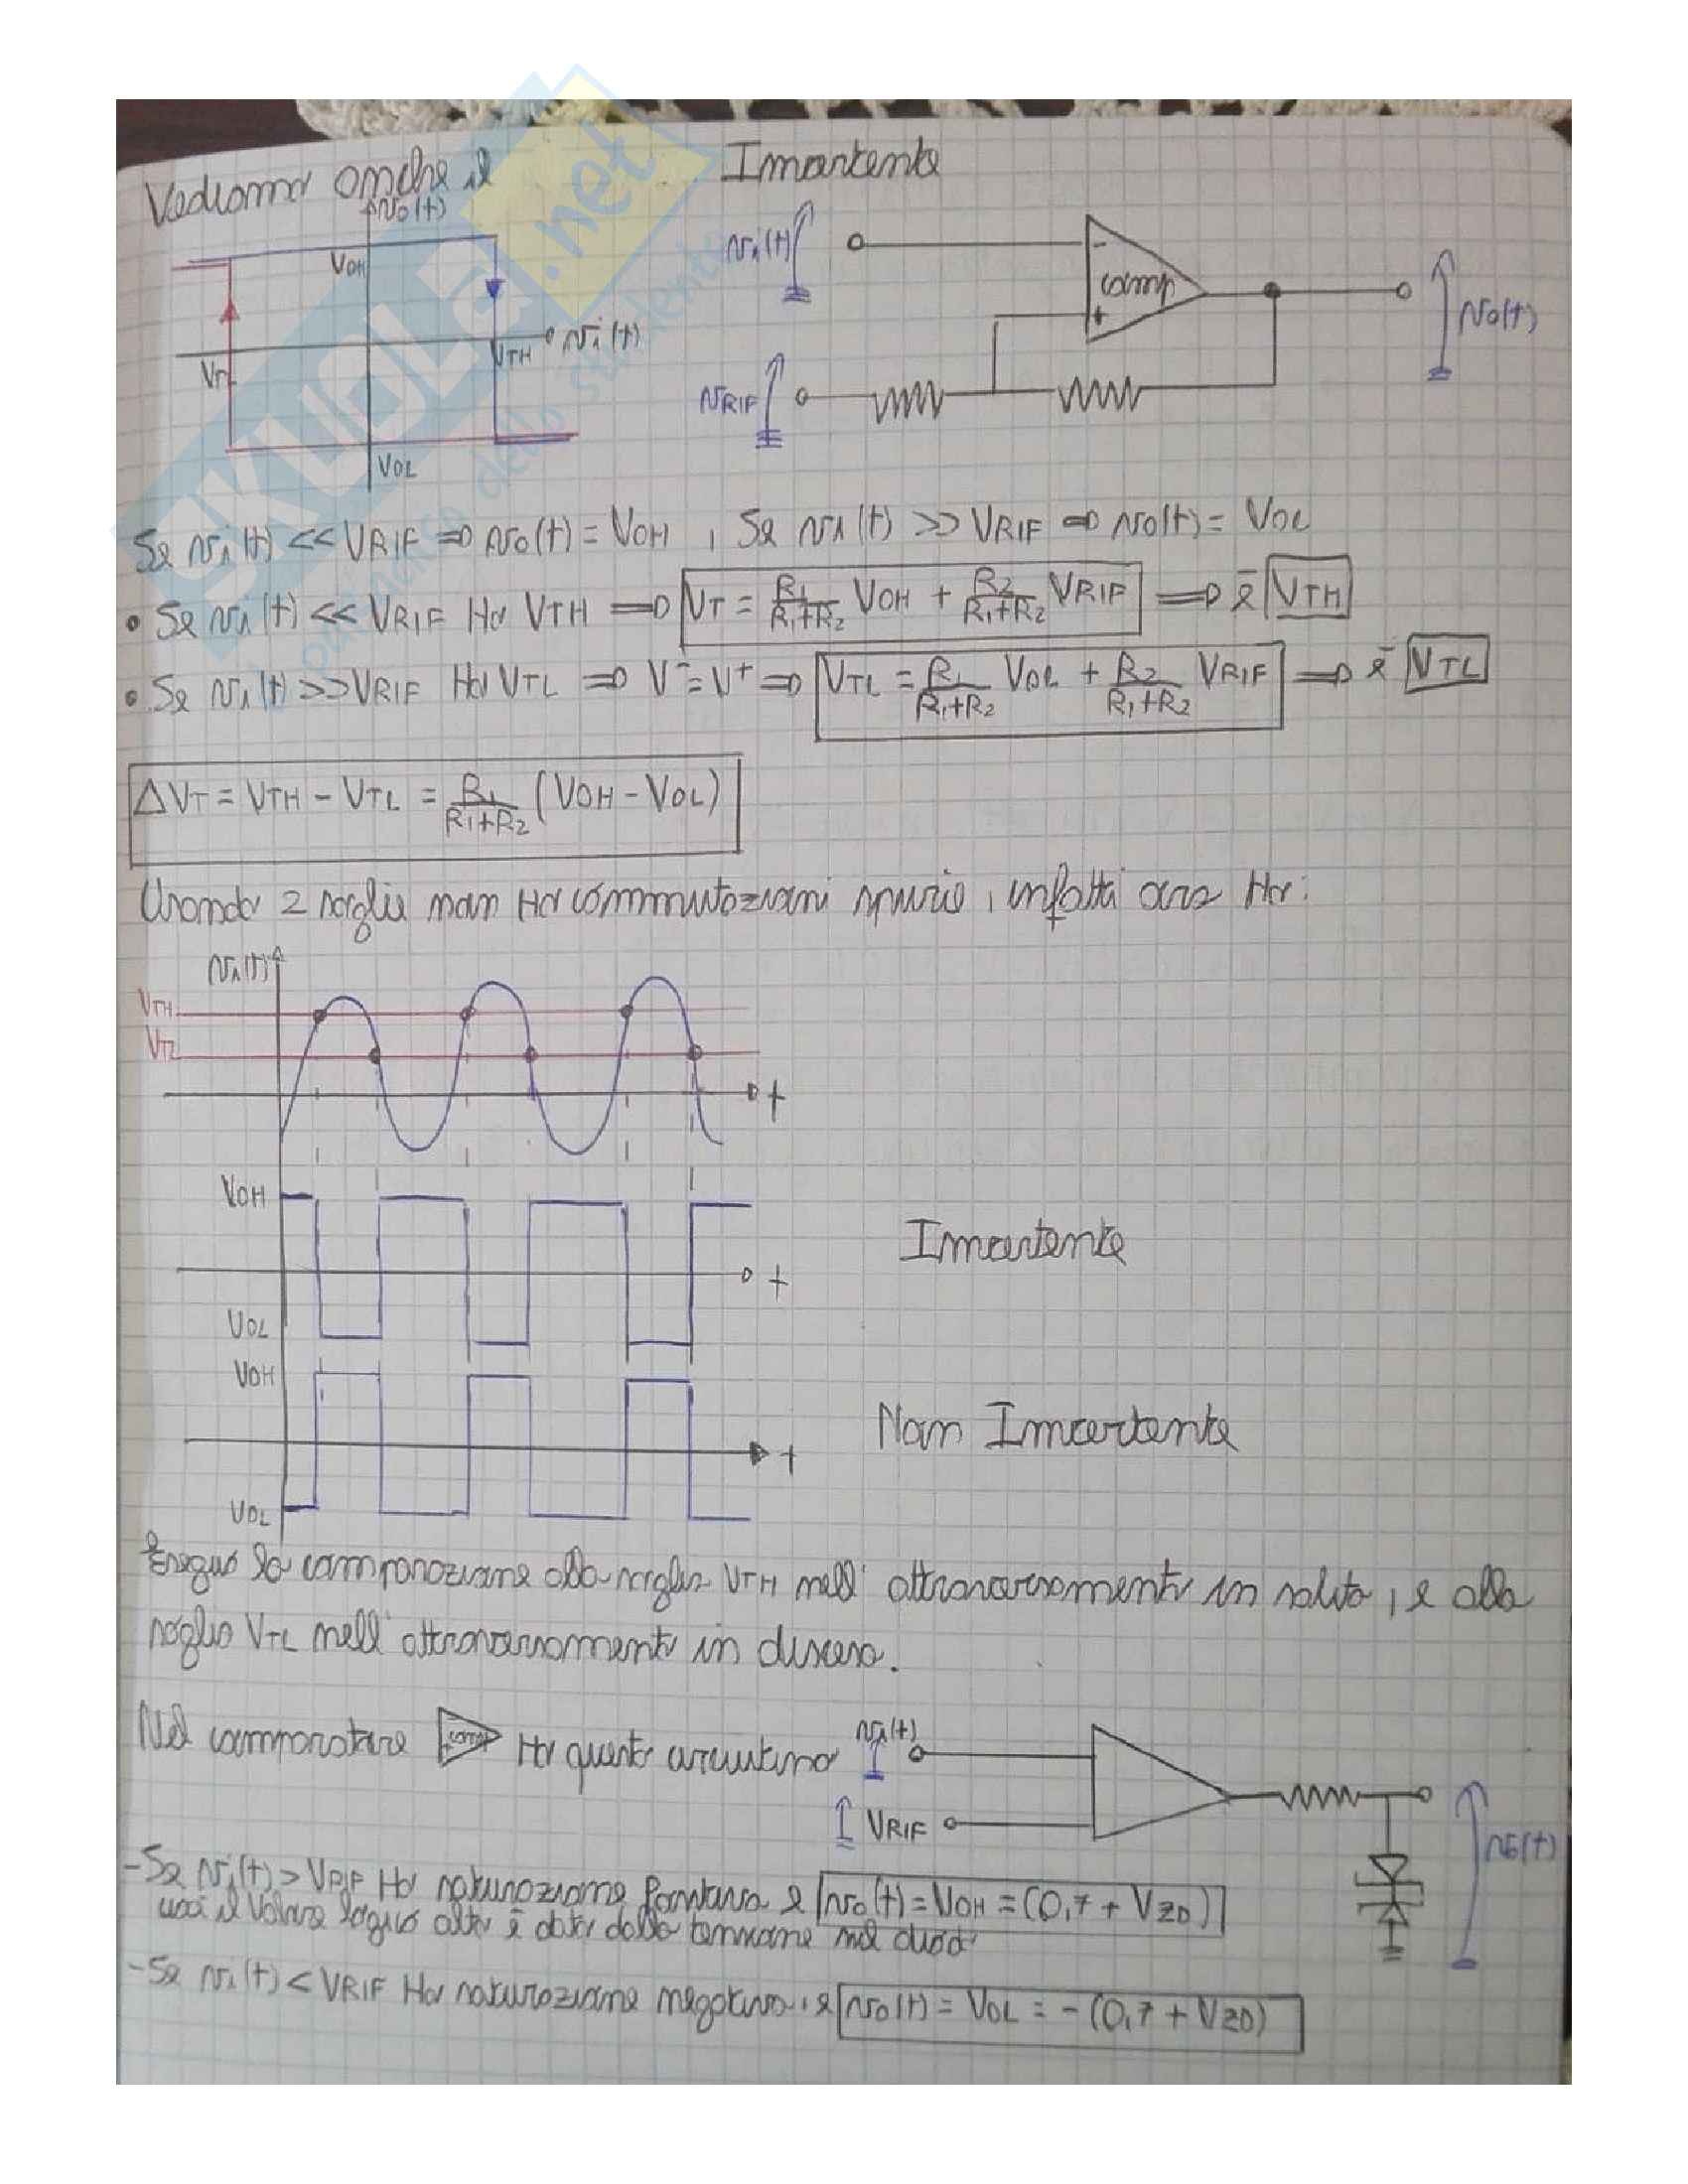 Vediamo anche il Invertente
vo(t)
VOH
vi(t)
VTH
VTL
VOL
vi(t)
-
comp
+
vo(t)
VRIF
Se vi(t) << VRIF => vo(t) = VOH , Se vi(t) >> VRIF => vo(t) = VOL
• Se vi(t) << VRIF Ho VTH => VT = R1/(R1+R2) VOH + R2/(R1+R2) VRIF => è VTH
• Se vi(t) >> VRIF Ho VTL => V⁻ = V⁺ => VTL = R1/(R1+R2) VOL + R2/(R1+R2) VRIF => è VTL
ΔVT = VTH - VTL = R1/(R1+R2) (VOH - VOL)
Usando 2 soglie non ho commutazioni spurie, infatti ora Ho:
vi(t)
VTH
VTL
t
VOH
Invertente
t
VOL
VOH
Non Invertente
t
VOL
Eseguo la comparazione alla soglia VTH nell'attraversamento in salita, e alla
soglia VTL nell'attraversamento in discesa.
Nel comparatore comp Ho questo circuitino
vi(t)
VRIF
vo(t)
- Se vi(t) > VRIF Ho saturazione positiva e vo(t) = VOH = (0,7 + VZD)
così il Valore logico alto è dato dalla tensione nel diodo
- Se vi(t) < VRIF Ho saturazione negativa, e vo(t) = VOL = -(0,7 + VZD)
SKUOLa.net